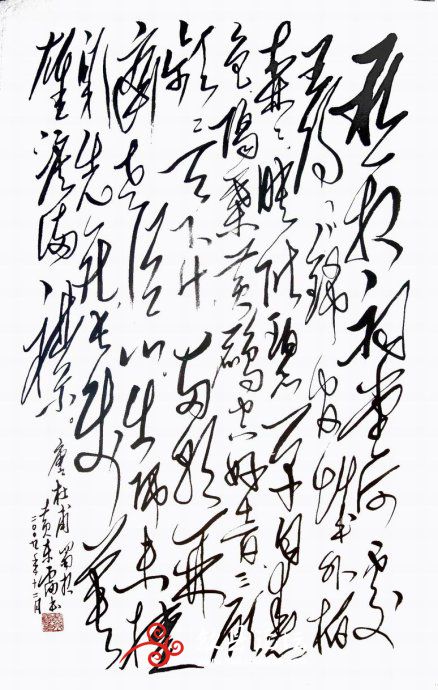 丞相祠堂何处
尋錦官城外柏
森森映階碧草自春
色隔葉黄鸝空好音三顧
频烦天下计两朝開
濟老臣心出师未捷
身先死长使英
雄淚满襟
唐杜甫蜀相
黄东雷书
二〇〇九年十二月